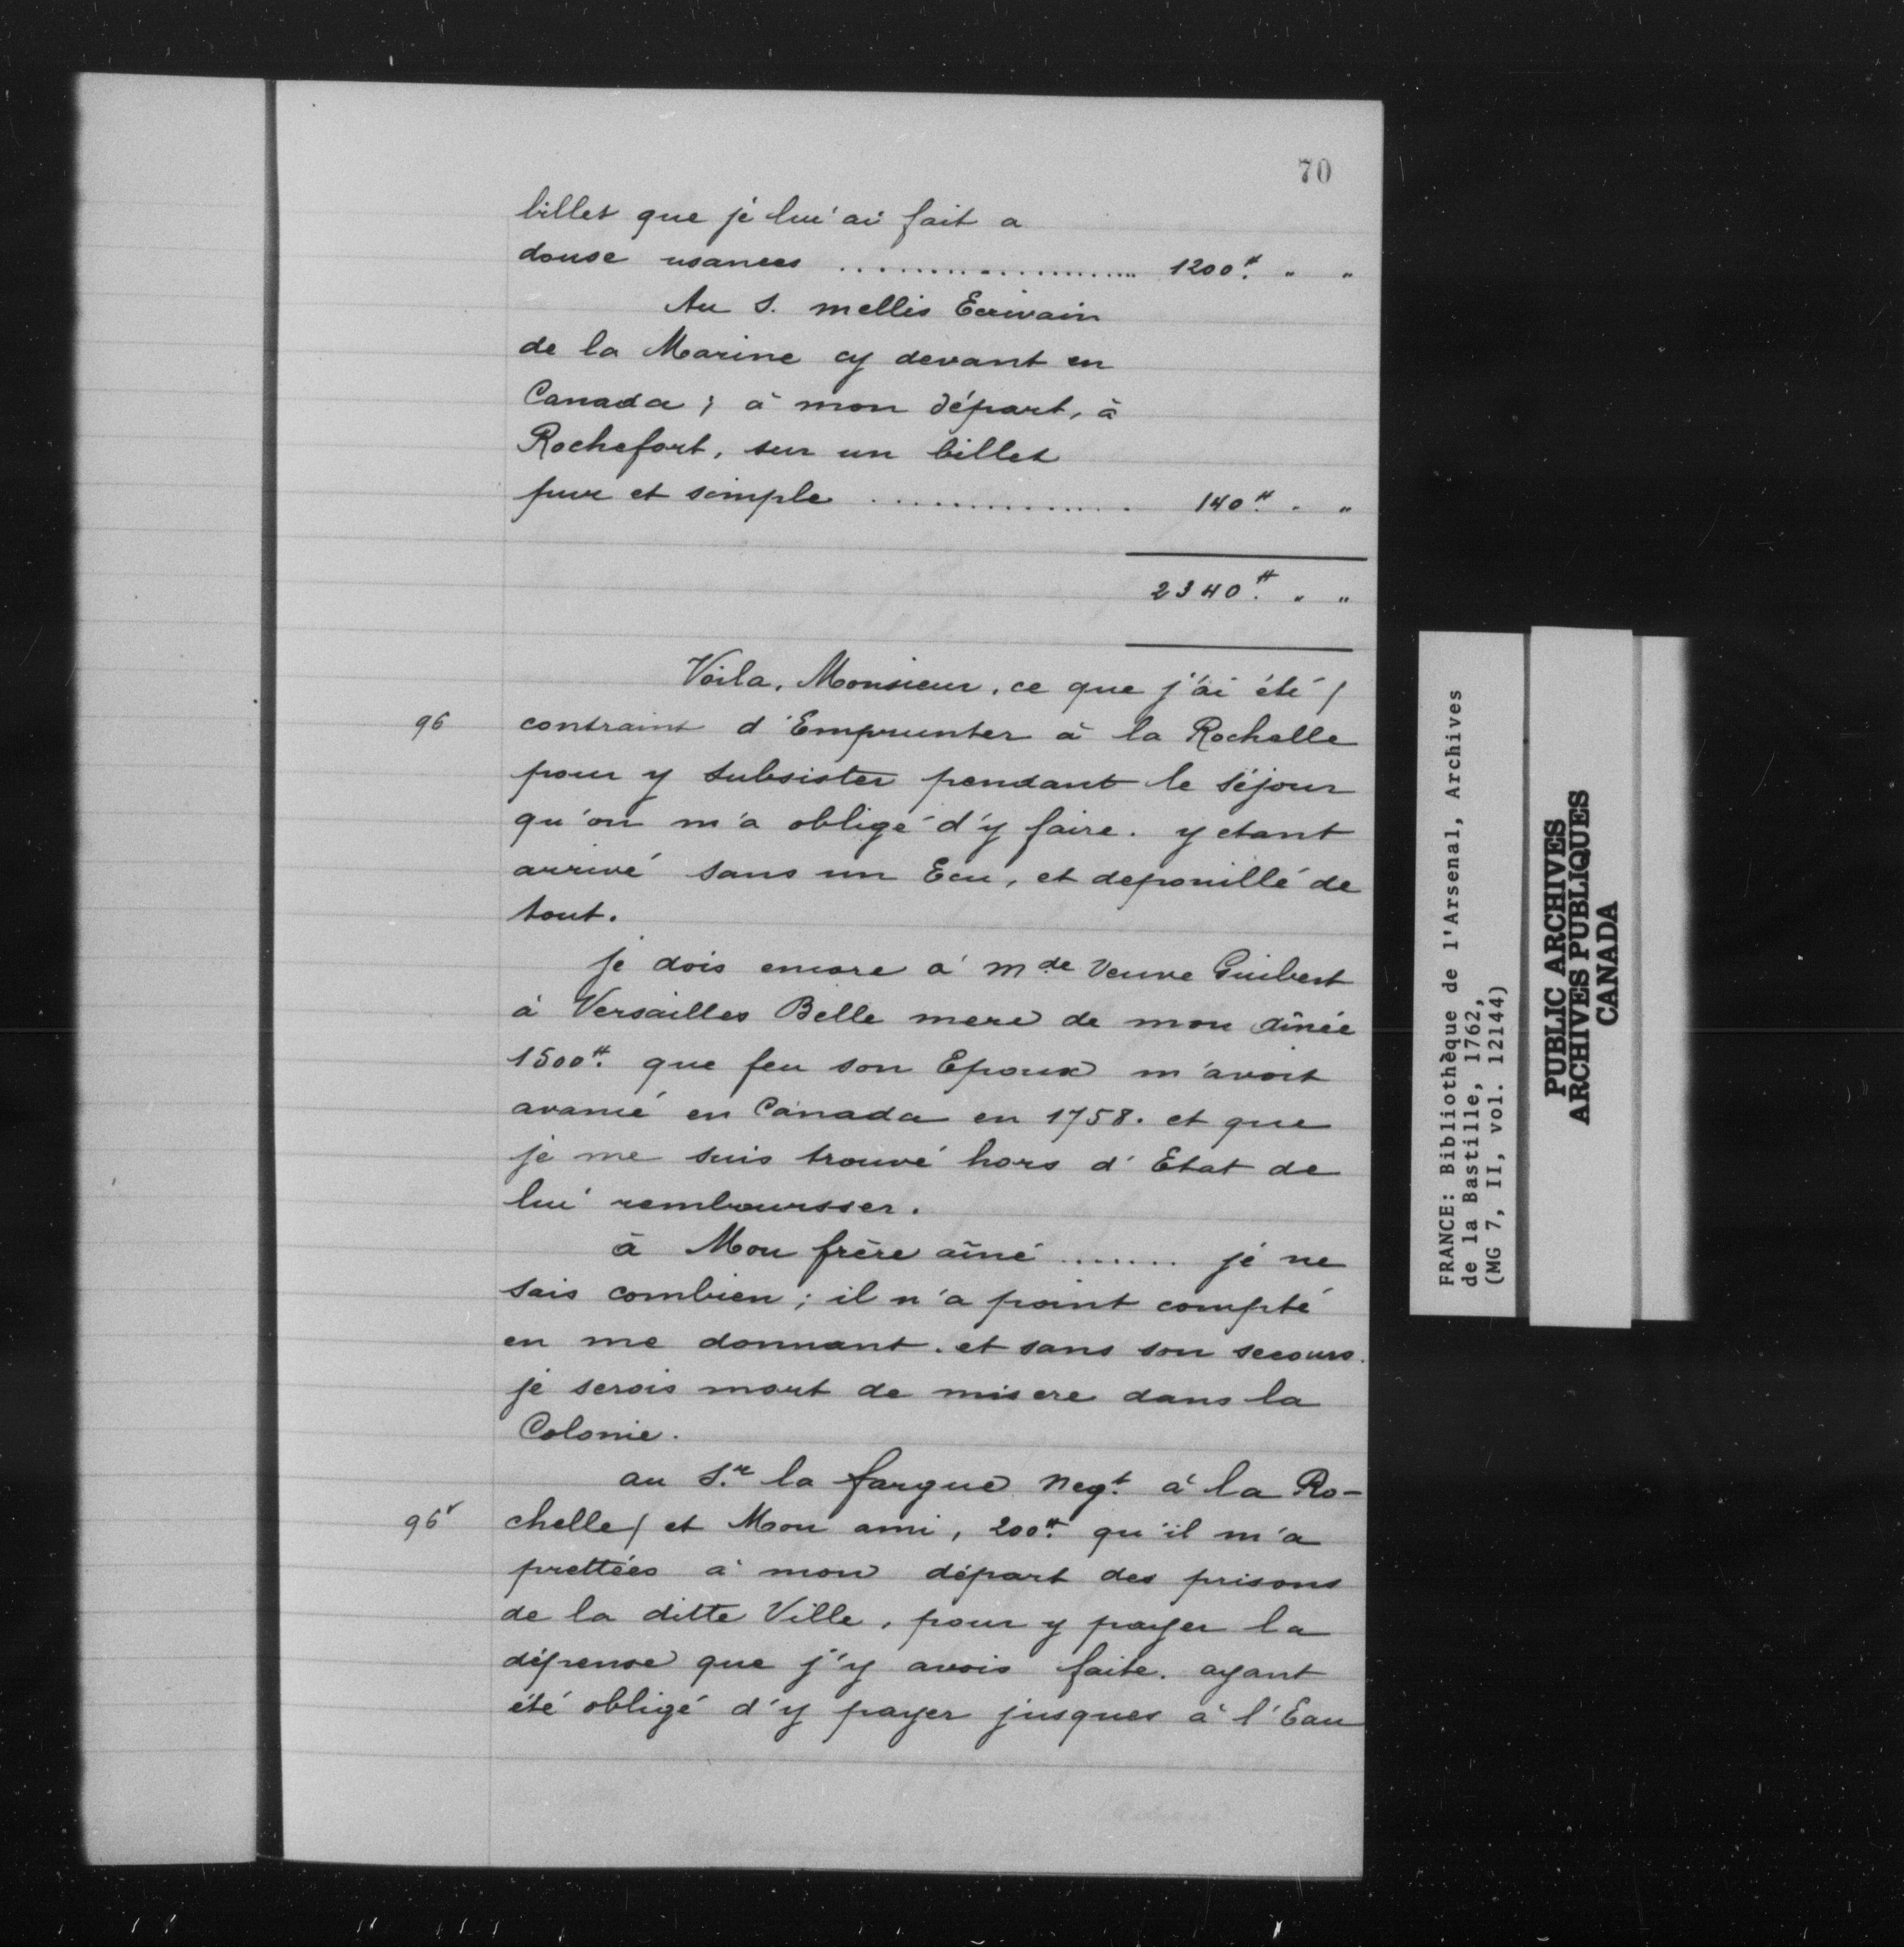 70
billet que je lui ai fait a
douse usances ..................... 1200.# " "
Au S. mellis Ecrivain
de la Marine cy devant en
Canada ; à mon départ, à
Rochefort, sur un billet
pur et simple ............... 140.# " "
2340.# " "
Voila, Monsieur, ce que j'ai été /
96 contraint d'Emprunter à la Rochelle
pour y subsister pendant le séjour
qu'on m'a obligé d'y faire. y etant
arrivé sans un Ecu, et depouillé de
tout.
je dois encore à mde Veuve Guibert
à Versailles Belle mere de mon aînée
1500.# que feu son Epoux m'avoit
avancé en Canada en 1758. et que
je me suis trouvé hors d'Etat de
lui remboursser.
à Mon frère aîné ........ je ne
sais combien ; il n'a point compté
en me donnant. et sans son secours.
je serois mort de misere dans la
Colonie.
au S.r la fargue Neg.t à la Ro-
96v chelle / et Mon ami, 200.# qu'il m'a
prettées à mon départ des prisons
de la ditte Ville, pour y payer la
dépense que j'y avois faite. ayant
été obligé d'y payer jusques à l'Eau
FRANCE: Bibliothèque de l'Arsenal, Archives
de la Bastille, 1762,
(MG 7, II, vol. 12144)
PUBLIC ARCHIVES
ARCHIVES PUBLIQUES
CANADA